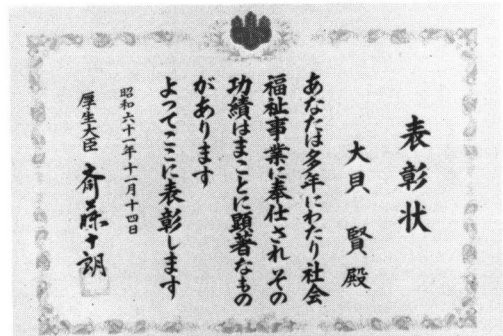 表彰状
大貝 賢 殿
あなたは多年にわたり社会
福祉事業に奉仕され その
功績はまことに顕著なもの
があります
よってここに表彰します
昭和六十一年十一月十四日
厚生大臣 斎藤十朗